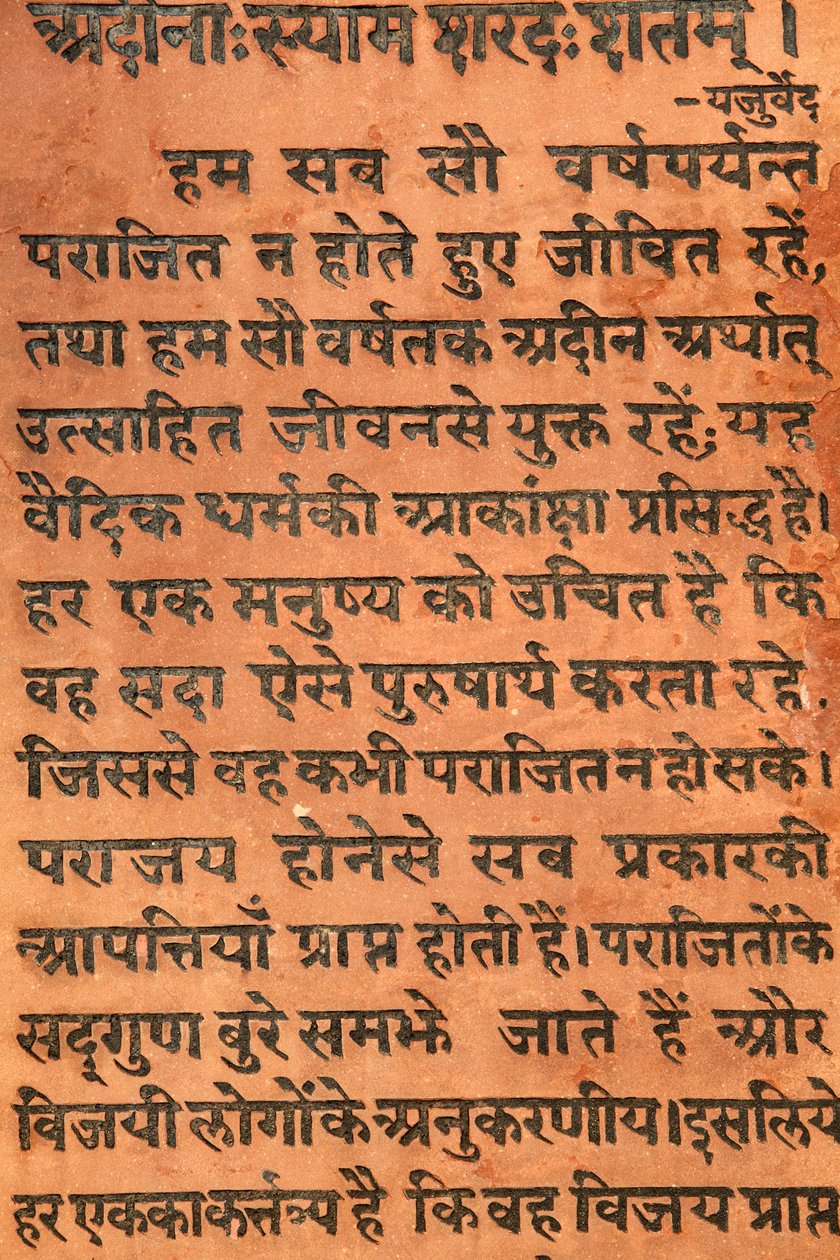 अदीनाःस्याम शरदःशतम् ।
-यजुर्वेद
हम सब सौ वर्षपर्यन्त
पराजित न होते हुए जीवित रहें,
तथा हम सौ वर्षतक अदीन अर्थात्
उत्साहित जीवनसे युक्त रहें; यह
वैदिक धर्मकी आकांक्षा प्रसिद्ध है।
हर एक मनुष्य को उचित है कि
वह सदा ऐसे पुरुषार्थ करता रहे.
जिससे वह कभी पराजित न हो सके।
पराजय होनेसे सब प्रकारकी
आपत्तियाँ प्राप्त होती हैं। पराजितोंके
सद्गुण बुरे समझे जाते हैं और
विजयी लोगोंके अनुकरणीय। इसलिये
हर एकका कर्त्तव्य है कि वह विजय प्राप्त